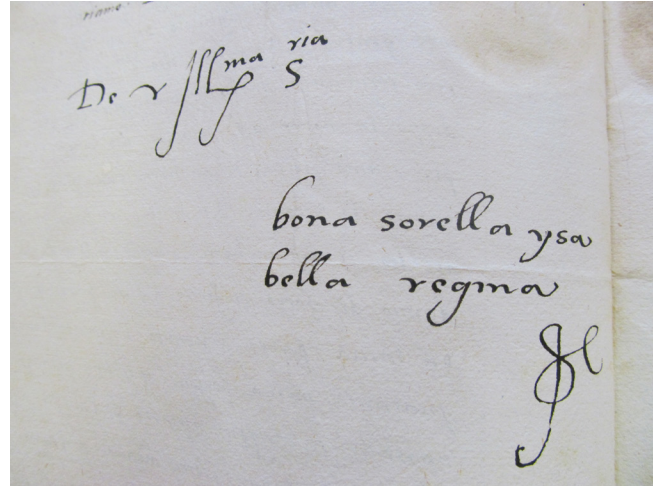 De v Ill^ma S^ria
bona sorella ysa
bella regina